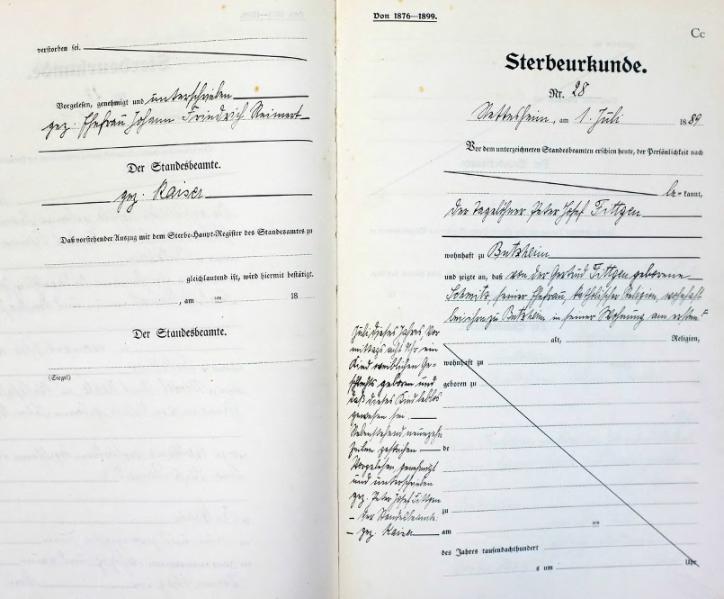 verstorben sei.
Vorgelesen, genehmigt und unterschrieben
gez. Ehefrau Johann Friedrich Reinert
Der Standesbeamte.
gez. Kaiser
Daß vorstehender Auszug mit dem Sterbe-Haupt-Register des Standesamtes zu
gleichlautend ist, wird hiermit bestätigt.
, am ten 18
Der Standesbeamte.
(Siegel)
Von 1876—1899.
Cc
Sterbeurkunde.
Nr. 28
Nettesheim, am 1. Juli 1889
Vor dem unterzeichneten Standesbeamten erschien heute, der Persönlichkeit nach
be=kannt,
der Tagelöhner Peter Josef Fittgen
wohnhaft zu Butzheim
und zeigte an, daß von der Gertrud Fittgen geborene
seiner Ehefrau, katholischer Religion, wohnhaft
bei ihm zu Butzheim in seiner Wohnung am ersten
alt, Religion,
Juli dieses Jahres, Vor
mittags acht Uhr, ein
Kind weiblichen Ge-
schlechts geboren und
daß dieses Kind leblos
gewesen sei.
Nebenstehend neunzehn
Zeilen gestrichen
Vorgelesen, genehmigt
und unterschrieben
gez. Peter Josef Fittgen
Der Standesbeamte
gez. Kaiser
wohnhaft zu
geboren zu
de
zu
am ten
des Jahres tausendachthundert
s um Uhr